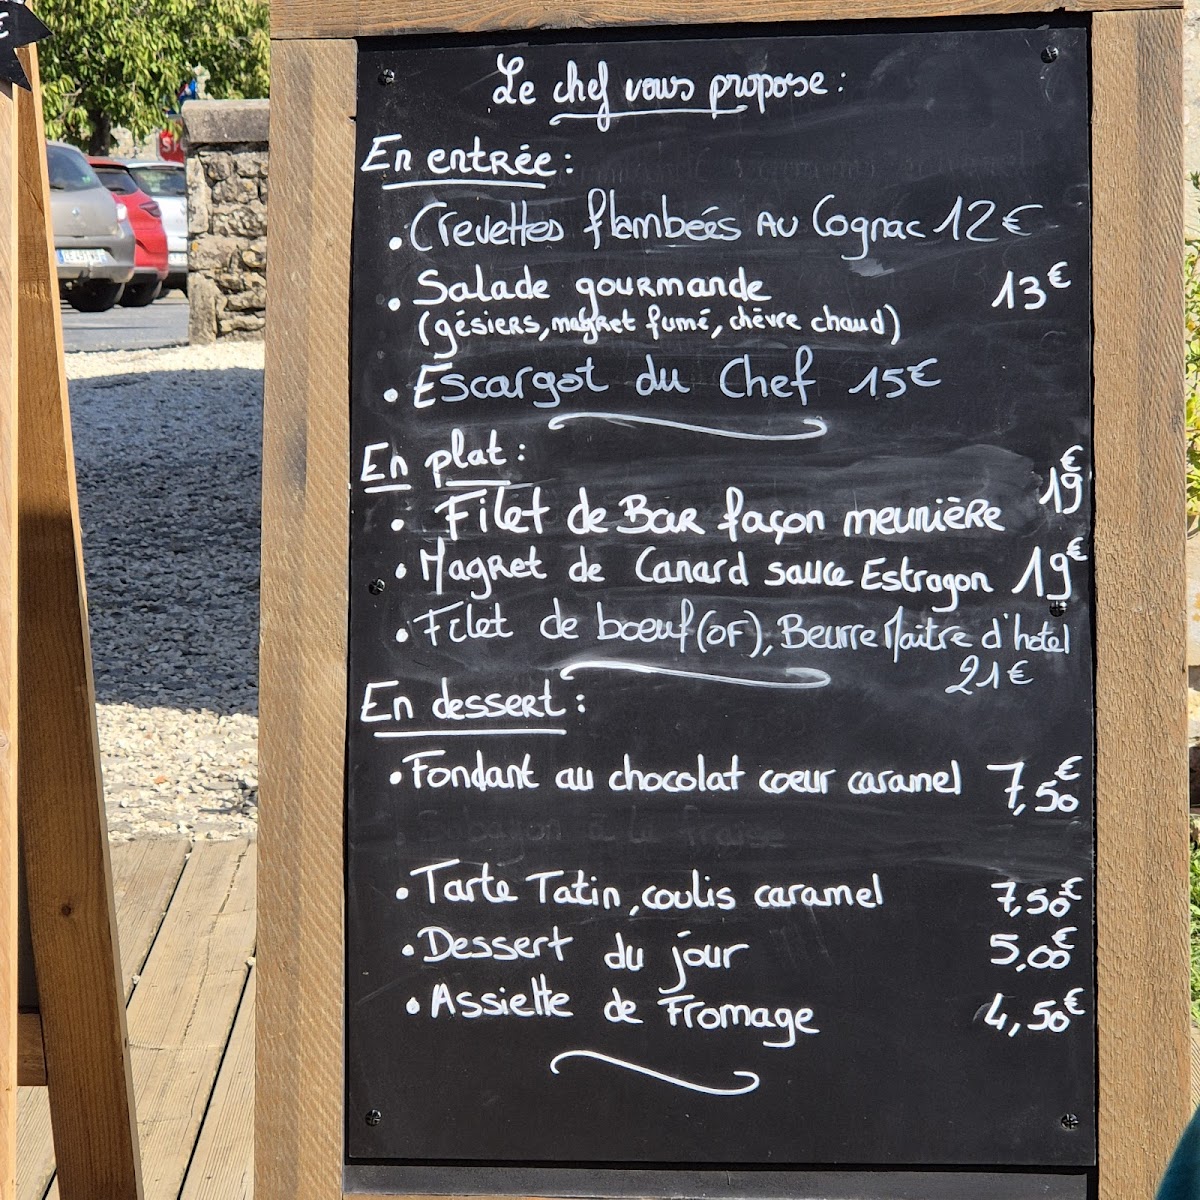 Le chef vous propose :
En entrée :
• Crevettes flambées au Cognac 12€
• Salade gourmande 13€
(gésiers, magret fumé, chèvre chaud)
• Escargot du Chef 15€
En plat :
• Filet de Bar façon meunière 19€
• Magret de Canard sauce Estragon 19€
• Filet de boeuf (OF), Beurre Maitre d'hotel
21€
En dessert :
• Fondant au chocolat coeur caramel 7,50€
• Sabayon à la fraise
• Tarte Tatin, coulis caramel 7,50€
• Dessert du jour 5,00€
• Assiette de Fromage 4,50€